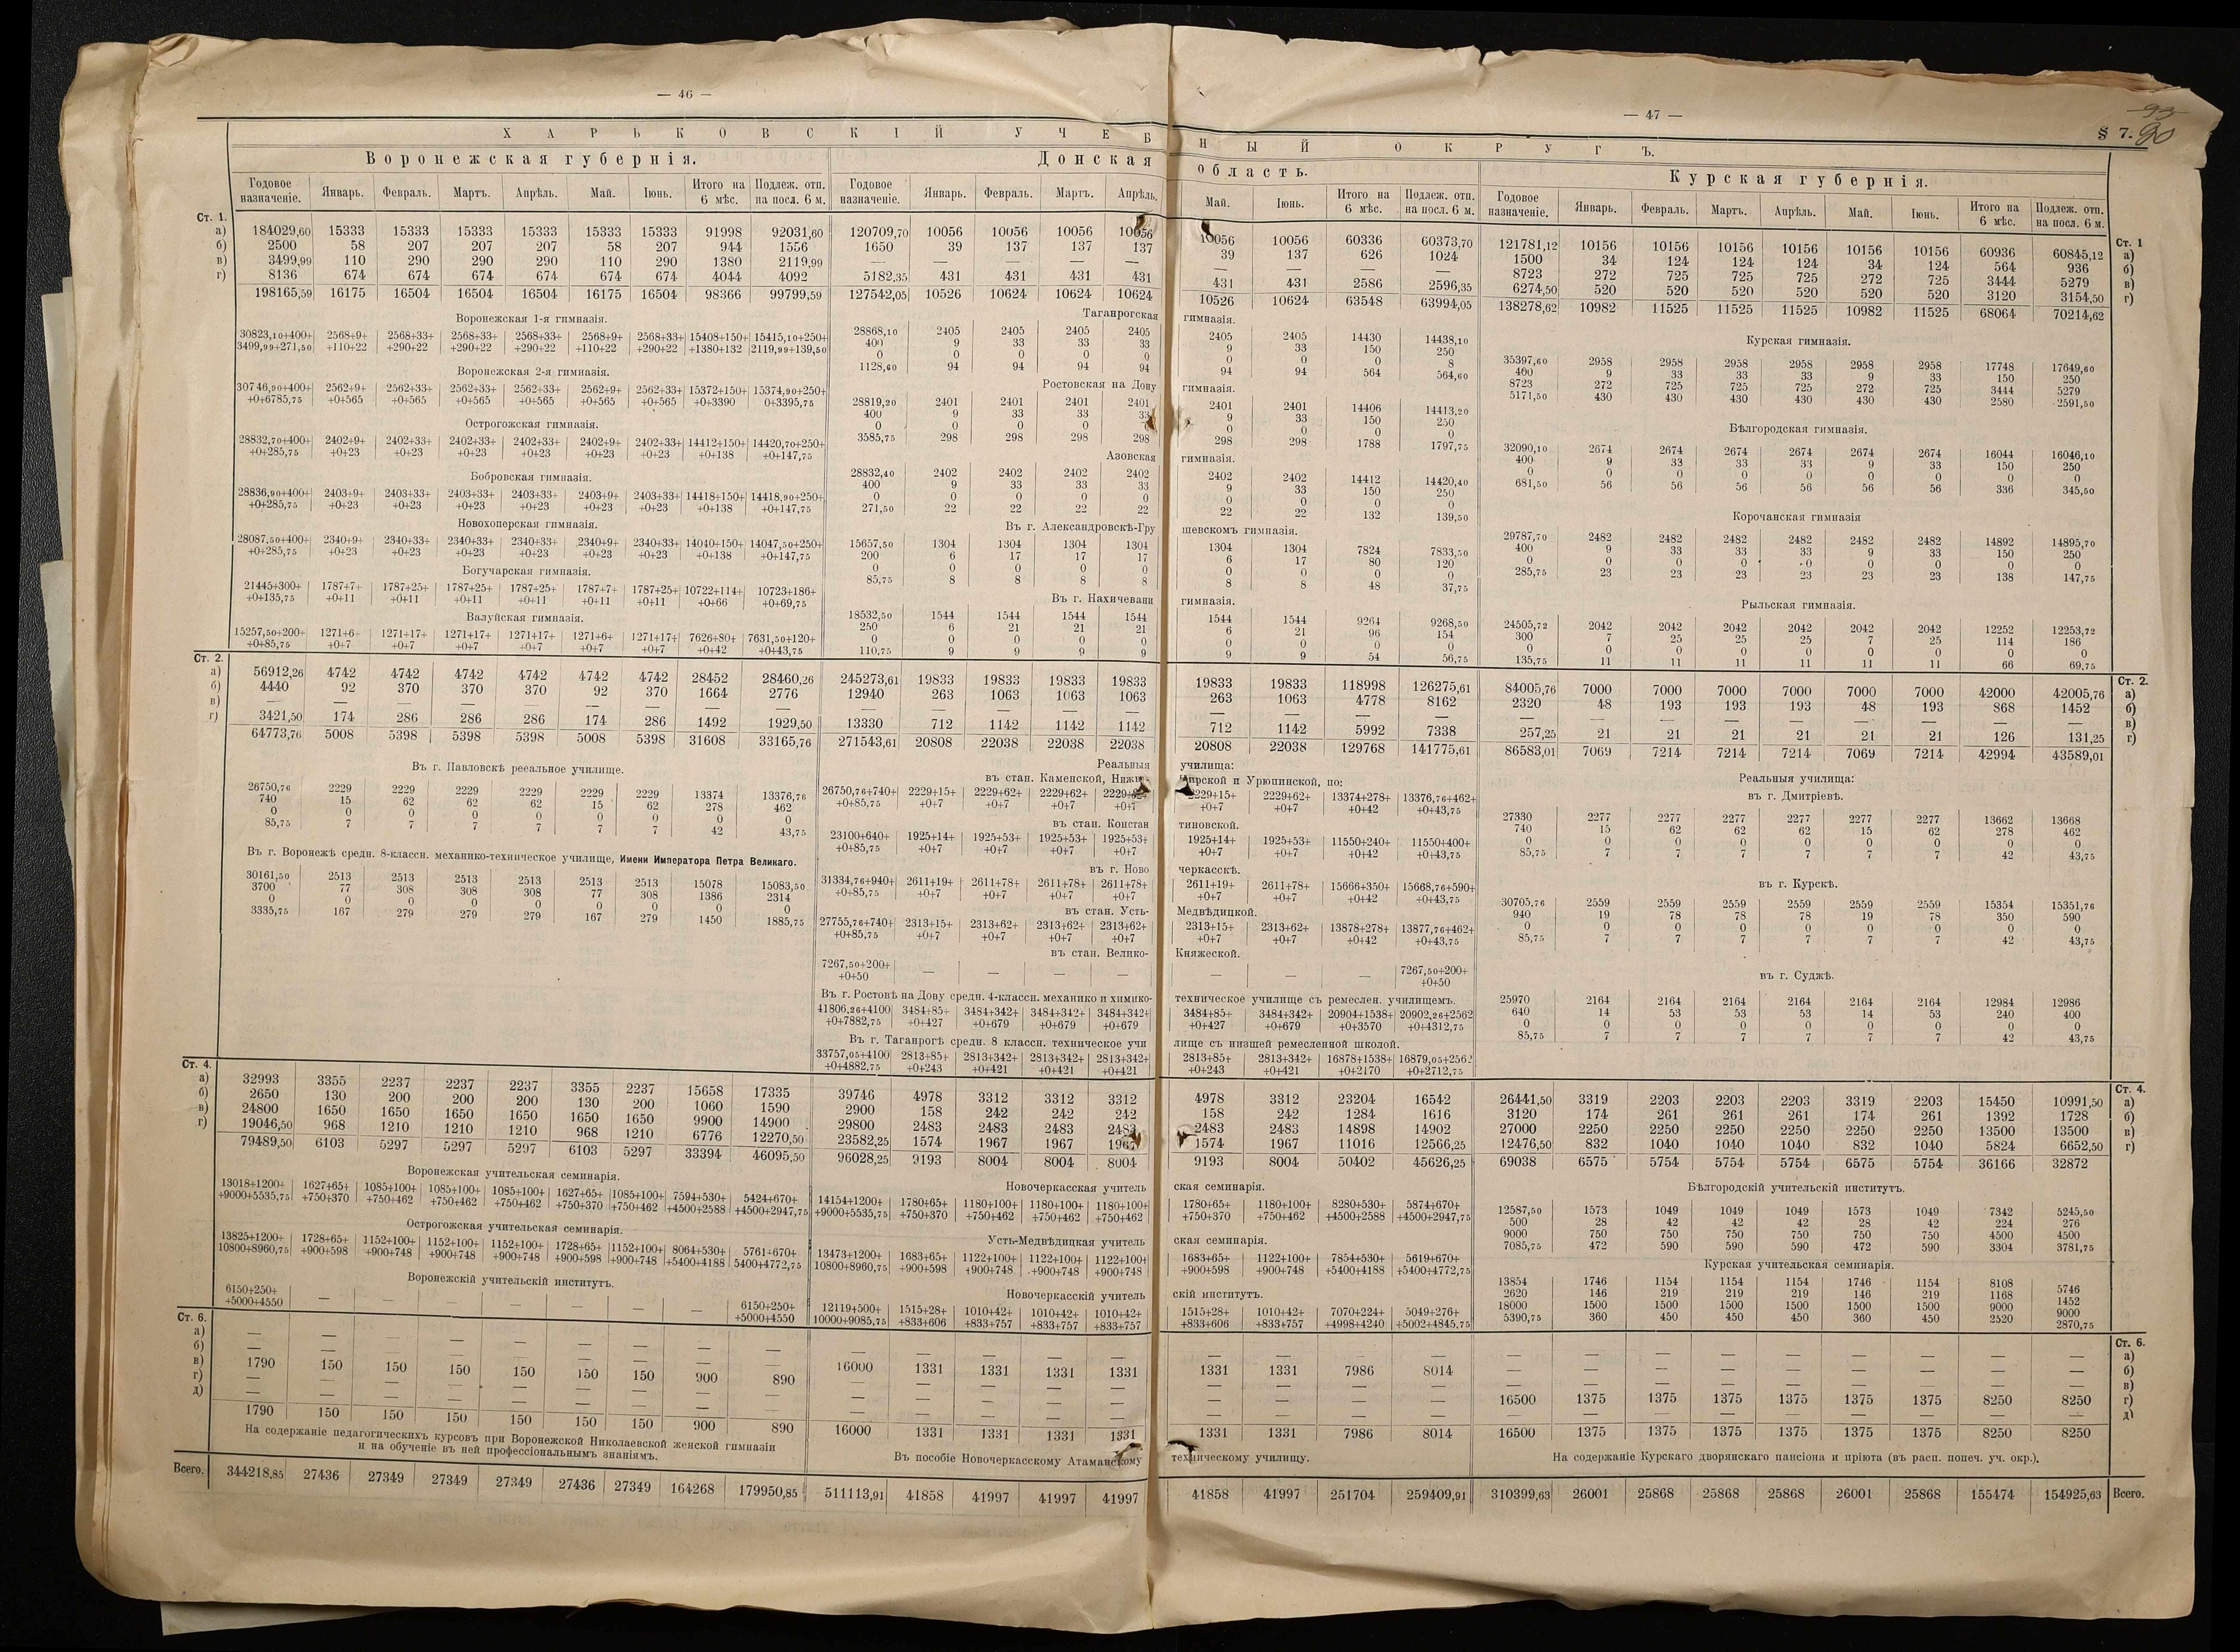 — 46 —
ХАРЬКОВСКІЙ УЧЕБ
Воронежская губернія.
Годовое назначеніе. Январь. Февраль. Мартъ. Апрѣль. Май. Іюнь. Итого на 6 мѣс. Подлеж. отп. на посл. 6 м.
Ст. 1.
а) 184029,60 15333 15333 15333 15333 15333 15333 91998 92031,60
б) 2500 58 207 207 207 58 207 944 1556
в) 3499,99 110 290 290 290 110 290 1380 2119,99
г) 8136 674 674 674 674 674 674 4044 4092
198165,59 16175 16504 16504 16504 16175 16504 98366 99799,59
Воронежская 1-я гимназія.
30823,10+400+ 2568+9+ 2568+33+ 2568+33+ 2568+33+ 2568+9+ 2568+33+ 15408+150+ 15415,10+250+
3499,99+271,50 +110+22 +290+22 +290+22 +290+22 +110+22 +290+22 +1380+132 2119,99+139,50
Воронежская 2-я гимназія.
30746,90+400+ 2562+9+ 2562+33+ 2562+33+ 2562+33+ 2562+9+ 2562+33+ 15372+150+ 15374,90+250+
+0+6785,75 +0+565 +0+565 +0+565 +0+565 +0+565 +0+565 +0+3390 0+3395,75
Острогожская гимназія.
28832,70+400+ 2402+9+ 2402+33+ 2402+33+ 2402+33+ 2402+9+ 2402+33+ 14412+150+ 14420,70+250+
+0+285,75 +0+23 +0+23 +0+23 +0+23 +0+23 +0+23 +0+138 +0+147,75
Бобровская гимназія.
28836,90+400+ 2403+9+ 2403+33+ 2403+33+ 2403+33+ 2403+9+ 2403+33+ 14418+150+ 14418,90+250+
+0+285,75 +0+23 +0+23 +0+23 +0+23 +0+23 +0+23 +0+138 +0+147,75
Новохоперская гимназія.
28087,50+400+ 2340+9+ 2340+33+ 2340+33+ 2340+33+ 2340+9+ 2340+33+ 14040+150+ 14047,50+250+
+0+285,75 +0+23 +0+23 +0+23 +0+23 +0+23 +0+23 +0+138 +0+147,75
Богучарская гимназія.
21445+300+ 1787+7+ 1787+25+ 1787+25+ 1787+25+ 1787+7+ 1787+25+ 10722+114+ 10723+186+
+0+135,75 +0+11 +0+11 +0+11 +0+11 +0+11 +0+11 +0+66 +0+69,75
Валуйская гимназія.
15257,50+200+ 1271+6+ 1271+17+ 1271+17+ 1271+17+ 1271+6+ 1271+17+ 7626+80+ 7631,50+120+
+0+85,75 +0+7 +0+7 +0+7 +0+7 +0+7 +0+7 +0+42 +0+43,75
Ст. 2.
а) 56912,26 4742 4742 4742 4742 4742 4742 28452 28460,26
б) 4440 92 370 370 370 92 370 1664 2776
в) — — — — — — — — —
г) 3421,50 174 286 286 286 174 286 1492 1929,50
64773,76 5008 5398 5398 5398 5008 5398 31608 33165,76
Въ г. Павловскѣ рееальное училище.
26750,76 2229 2229 2229 2229 2229 2229 13374 13376,76
740 15 62 62 62 15 62 278 462
0 0 0 0 0 0 0 0 0
85,75 7 7 7 7 7 7 42 43,75
Въ г. Воронежѣ средн. 8-классн. механико-техническое училище, Имени Императора Петра Великаго.
30161,50 2513 2513 2513 2513 2513 2513 15078 15083,50
3700 77 308 308 308 77 308 1386 2314
0 0 0 0 0 0 0 0 0
3335,75 167 279 279 279 167 279 1450 1885,75
Ст. 4.
а) 32993 3355 2237 2237 2237 3355 2237 15658 17335
б) 2650 130 200 200 200 130 200 1060 1590
в) 24800 1650 1650 1650 1650 1650 1650 9900 14900
г) 19046,50 968 1210 1210 1210 968 1210 6776 12270,50
79489,50 6103 5297 5297 5297 6103 5297 33394 46095,50
Воронежская учительская семинарія.
13018+1200+ 1627+65+ 1085+100+ 1085+100+ 1085+100+ 1627+65+ 1085+100+ 7594+530+ 5424+670+
+9000+5535,75 +750+370 +750+462 +750+462 +750+462 +750+370 +750+462 +4500+2588 +4500+2947,75
Острогожская учительская семинарія.
13825+1200+ 1728+65+ 1152+100+ 1152+100+ 1152+100+ 1728+65+ 1152+100+ 8064+530+ 5761+670+
10800+8960,75 +900+598 +900+748 +900+748 +900+748 +900+598 +900+748 +5400+4188 5400+4772,75
Воронежскій учительскій институтъ.
6150+250+ — — — — — — — 6150+250+
+5000+4550 +5000+4550
Ст. 6.
а) — — — — — — — — —
б) — — — — — — — — —
в) 1790 150 150 150 150 150 150 900 890
г) — — — — — — — — —
д) — — — — — — — — —
1790 150 150 150 150 150 150 900 890
На содержаніе педагогическихъ курсовъ при Воронежской Николаевской женской гимназіи
и на обученіе въ ней профессіональнымъ знаніямъ.
Всего. 344218,85 27436 27349 27349 27349 27436 27349 164268 179950,85
Донская
Годовое назначеніе. Январь. Февраль. Мартъ. Апрѣль.
120709,70 10056 10056 10056 10056
1650 39 137 137 137
— — — — —
5182,35 431 431 431 431
127542,05 10526 10624 10624 10624
Таганрогская
28868,10 2405 2405 2405 2405
400 9 33 33 33
0 0 0 0 0
1128,60 94 94 94 94
Ростовская на Дону
28819,20 2401 2401 2401 2401
400 9 33 33 33
0 0 0 0 0
3585,75 298 298 298 298
Азовская
28832,40 2402 2402 2402 2402
400 9 33 33 33
0 0 0 0 0
271,50 22 22 22 22
Въ г. Александровскѣ-Гру
15657,50 1304 1304 1304 1304
200 6 17 17 17
0 0 0 0 0
85,75 8 8 8 8
Въ г. Нахичевани
18532,50 1544 1544 1544 1544
250 6 21 21 21
0 0 0 0 0
110,75 9 9 9 9
245273,61 19833 19833 19833 19833
12940 263 1063 1063 1063
— — — — —
13330 712 1142 1142 1142
271543,61 20808 22038 22038 22038
Реальныя
въ стан. Каменской, Нижне-
26750,76+740+ 2229+15+ 2229+62+ 2229+62+ 2229+62+
+0+85,75 +0+7 +0+7 +0+7 +0+7
въ стан. Констан
23100+640+ 1925+14+ 1925+53+ 1925+53+ 1925+53+
+0+85,75 +0+7 +0+7 +0+7 +0+7
въ г. Ново
31334,76+940+ 2611+19+ 2611+78+ 2611+78+ 2611+78+
+0+85,75 +0+7 +0+7 +0+7 +0+7
въ стан. Усть-
27755,76+740+ 2313+15+ 2313+62+ 2313+62+ 2313+62+
+0+85,75 +0+7 +0+7 +0+7 +0+7
въ стан. Велико-
7267,50+200+ — — — —
+0+50
Въ г. Ростовѣ на Дову средн. 4-классн. механико и химико-
41806,26+4100 3484+85+ 3484+342+ 3484+342+ 3484+342+
+0+7882,75 +0+427 +0+679 +0+679 +0+679
Въ г. Таганрогѣ средн. 8 классн. техническое учи
33757,05+4100 2813+85+ 2813+342+ 2813+342+ 2813+342+
+0+4882,75 +0+243 +0+421 +0+421 +0+421
39746 4978 3312 3312 3312
2900 158 242 242 242
29800 2483 2483 2483 2483
23582,25 1574 1967 1967 1967
96028,25 9193 8004 8004 8004
Новочеркасская учитель
14154+1200+ 1780+65+ 1180+100+ 1180+100+ 1180+100+
+9000+5535,75 +750+370 +750+462 +750+462 +750+462
Усть-Медвѣдицкая учитель
13473+1200+ 1683+65+ 1122+100+ 1122+100+ 1122+100+
10800+8960,75 +900+598 +900+748 +900+748 +900+748
Новочеркасскій учитель
12119+500+ 1515+28+ 1010+42+ 1010+42+ 1010+42+
10000+9085,75 +833+606 +833+757 +833+757 +833+757
— — — — —
16000 1331 1331 1331 1331
— — — — —
— — — — —
— — — — —
16000 1331 1331 1331 1331
Въ пособіе Новочеркасскому Атаманскому
511113,91 41858 41997 41997 41997
— 47 —
93
§ 7. 90
НЫЙ ОКРУГЪ.
область.
Май. Іюнь. Итого на 6 мѣс. Подлеж. отп. на посл. 6 м.
10056 10056 60336 60373,70
39 137 626 1024
— — — —
431 431 2586 2596,35
10526 10624 63548 63994,05
гимназія.
2405 2405 14430 14438,10
9 33 150 250
0 0 0 8
94 94 564 564,60
гимназія.
2401 2401 14406 14413,20
9 33 150 250
0 0 0 0
298 298 1788 1797,75
гимназія.
2402 2402 14412 14420,40
9 33 150 250
0 0 0 0
22 22 132 139,50
шевскомъ гимназія.
1304 1304 7824 7833,50
6 17 80 120
0 0 0 0
8 8 48 37,75
гимназія.
1544 1544 9264 9268,50
6 21 96 154
0 0 0 0
9 9 54 56,75
19833 19833 118998 126275,61
263 1063 4778 8162
— — — —
712 1142 5992 7338
20808 22038 129768 141775,61
училища:
Чирской и Урюпинской, по:
2229+15+ 2229+62+ 13374+278+ 13376,76+462+
+0+7 +0+7 +0+42 +0+43,75
тиновской.
1925+14+ 1925+53+ 11550+240+ 11550+400+
+0+7 +0+7 +0+42 +0+43,75
черкасскѣ.
2611+19+ 2611+78+ 15666+350+ 15668,76+590+
+0+7 +0+7 +0+42 +0+43,75
Медвѣдицкой.
2313+15+ 2313+62+ 13878+278+ 13877,76+462+
+0+7 +0+7 +0+42 +0+43,75
Княжеской.
— — — 7267,50+200+
+0+50
техническое училище съ ремеслен. училищемъ.
3484+85+ 3484+342+ 20904+1538+ 20902,26+2562
+0+427 +0+679 +0+3570 +0+4312,75
лище съ низшей ремесленной школой.
2813+85+ 2813+342+ 16878+1538+ 16879,05+2562
+0+243 +0+421 +0+2170 +0+2712,75
4978 3312 23204 16542
158 242 1284 1616
2483 2483 14898 14902
1574 1967 11016 12566,25
9193 8004 50402 45626,25
ская семинарія.
1780+65+ 1180+100+ 8280+530+ 5874+670+
+750+370 +750+462 +4500+2588 +4500+2947,75
ская семинарія.
1683+65+ 1122+100+ 7854+530+ 5619+670+
+900+598 +900+748 +5400+4188 +5400+4772,75
скій институтъ.
1515+28+ 1010+42+ 7070+224+ 5049+276+
+833+606 +833+757 +4998+4240 +5002+4845,75
— — — —
1331 1331 7986 8014
— — — —
— — — —
— — — —
1331 1331 7986 8014
техническому училищу.
41858 41997 251704 259409,91
Курская губернія.
Годовое назначеніе. Январь. Февраль. Мартъ. Апрѣль. Май. Іюнь. Итого на 6 мѣс. Подлеж. отп. на посл. 6 м.
Ст. 1
121781,12 10156 10156 10156 10156 10156 10156 60936 60845,12 а)
1500 34 124 124 124 34 124 564 936 б)
8723 272 725 725 725 272 725 3444 5279 в)
6274,50 520 520 520 520 520 520 3120 3154,50 г)
138278,62 10982 11525 11525 11525 10982 11525 68064 70214,62
Курская гимназія.
35397,60 2958 2958 2958 2958 2958 2958 17748 17649,60
400 9 33 33 33 9 33 150 250
8723 272 725 725 725 272 725 3444 5279
5171,50 430 430 430 430 430 430 2580 2591,50
Бѣлгородская гимназія.
32090,10 2674 2674 2674 2674 2674 2674 16044 16046,10
400 9 33 33 33 9 33 150 250
0 0 0 0 0 0 0 0 0
681,50 56 56 56 56 56 56 336 345,50
Корочанская гимназія
29787,70 2482 2482 2482 2482 2482 2482 14892 14895,70
400 9 33 33 33 9 33 150 250
0 0 0 0 0 0 0 0 0
285,75 23 23 23 23 23 23 138 147,75
Рыльская гимназія.
24505,72 2042 2042 2042 2042 2042 2042 12252 12253,72
300 7 25 25 25 7 25 114 186
0 0 0 0 0 0 0 0 0
135,75 11 11 11 11 11 11 66 69,75
Ст. 2.
84005,76 7000 7000 7000 7000 7000 7000 42000 42005,76 а)
2320 48 193 193 193 48 193 868 1452 б)
— — — — — — — — — в)
257,25 21 21 21 21 21 21 126 131,25 г)
86583,01 7069 7214 7214 7214 7069 7214 42994 43589,01
Реальныя училища:
въ г. Дмитріевѣ.
27330 2277 2277 2277 2277 2277 2277 13662 13668
740 15 62 62 62 15 62 278 462
0 0 0 0 0 0 0 0 0
85,75 7 7 7 7 7 7 42 43,75
въ г. Курскѣ.
30705,76 2559 2559 2559 2559 2559 2559 15354 15351,76
940 19 78 78 78 19 78 350 590
0 0 0 0 0 0 0 0 0
85,75 7 7 7 7 7 7 42 43,75
въ г. Суджѣ.
25970 2164 2164 2164 2164 2164 2164 12984 12986
640 14 53 53 53 14 53 240 400
0 0 0 0 0 0 0 0 0
85,75 7 7 7 7 7 7 42 43,75
Ст. 4.
26441,50 3319 2203 2203 2203 3319 2203 15450 10991,50 а)
3120 174 261 261 261 174 261 1392 1728 б)
27000 2250 2250 2250 2250 2250 2250 13500 13500 в)
12476,50 832 1040 1040 1040 832 1040 5824 6652,50 г)
69038 6575 5754 5754 5754 6575 5754 36166 32872
Бѣлгородскій учительскій институтъ.
12587,50 1573 1049 1049 1049 1573 1049 7342 5245,50
500 28 42 42 42 28 42 224 276
9000 750 750 750 750 750 750 4500 4500
7085,75 472 590 590 590 472 590 3304 3781,75
Курская учительская семинарія.
13854 1746 1154 1154 1154 1746 1154 8108 5746
2620 146 219 219 219 146 219 1168 1452
18000 1500 1500 1500 1500 1500 1500 9000 9000
5390,75 360 450 450 450 360 450 2520 2870,75
Ст. 6.
— — — — — — — — — а)
— — — — — — — — — б)
— — — — — — — — — в)
16500 1375 1375 1375 1375 1375 1375 8250 8250 г)
— — — — — — — — — д)
16500 1375 1375 1375 1375 1375 1375 8250 8250
На содержаніе Курскаго дворянскаго пансіона и пріюта (въ расп. попеч. уч. окр.).
310399,63 26001 25868 25868 25868 26001 25868 155474 154925,63 Всего.